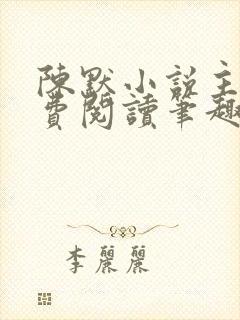 陳默小說主
費閱讀筆趣
李麗麗